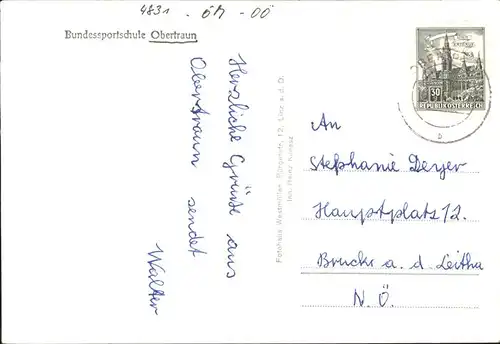 4831 . 
Bundessportschule Obertraun
Herzliche Grüße aus
Obertraun sendet
Walter
Fotohaus Westmüller, Bürgerstr. 12, Linz a. d. D.
30
REPUBLIK ÖSTERREICH
An
Stephanie Deyer
Hauptplatz 12.
Brucke a. d. Leitha
N.Ö.